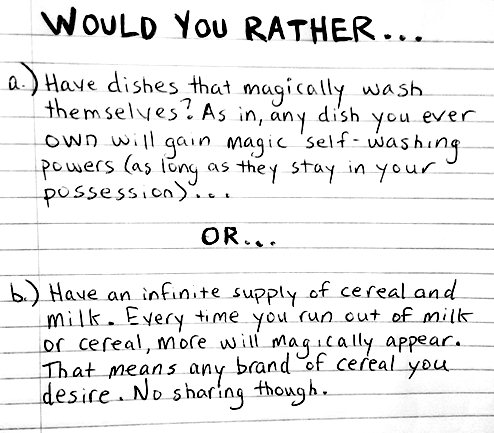 WOULD YOU RATHER...
a.) Have dishes that magically wash
themselves? As in, any dish you ever
own will gain magic self-washing
powers (as long as they stay in your
possession)...
OR...
b.) Have an infinite supply of cereal and
milk. Every time you run out of milk
or cereal, more will magically appear.
That means any brand of cereal you
desire. No sharing though.